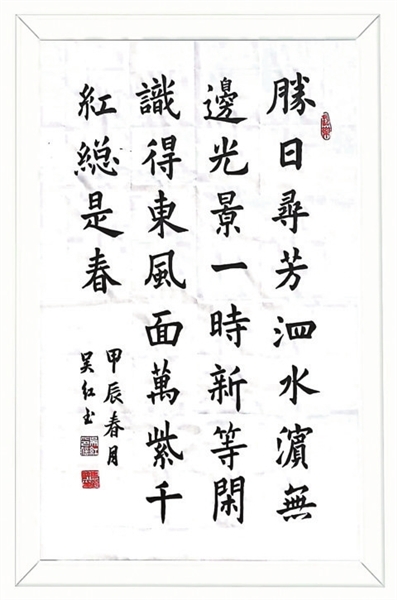 勝日尋芳泗水濱無
邊光景一時新等閑
識得東風面萬紫千
紅總是春
甲辰春月
吴红书